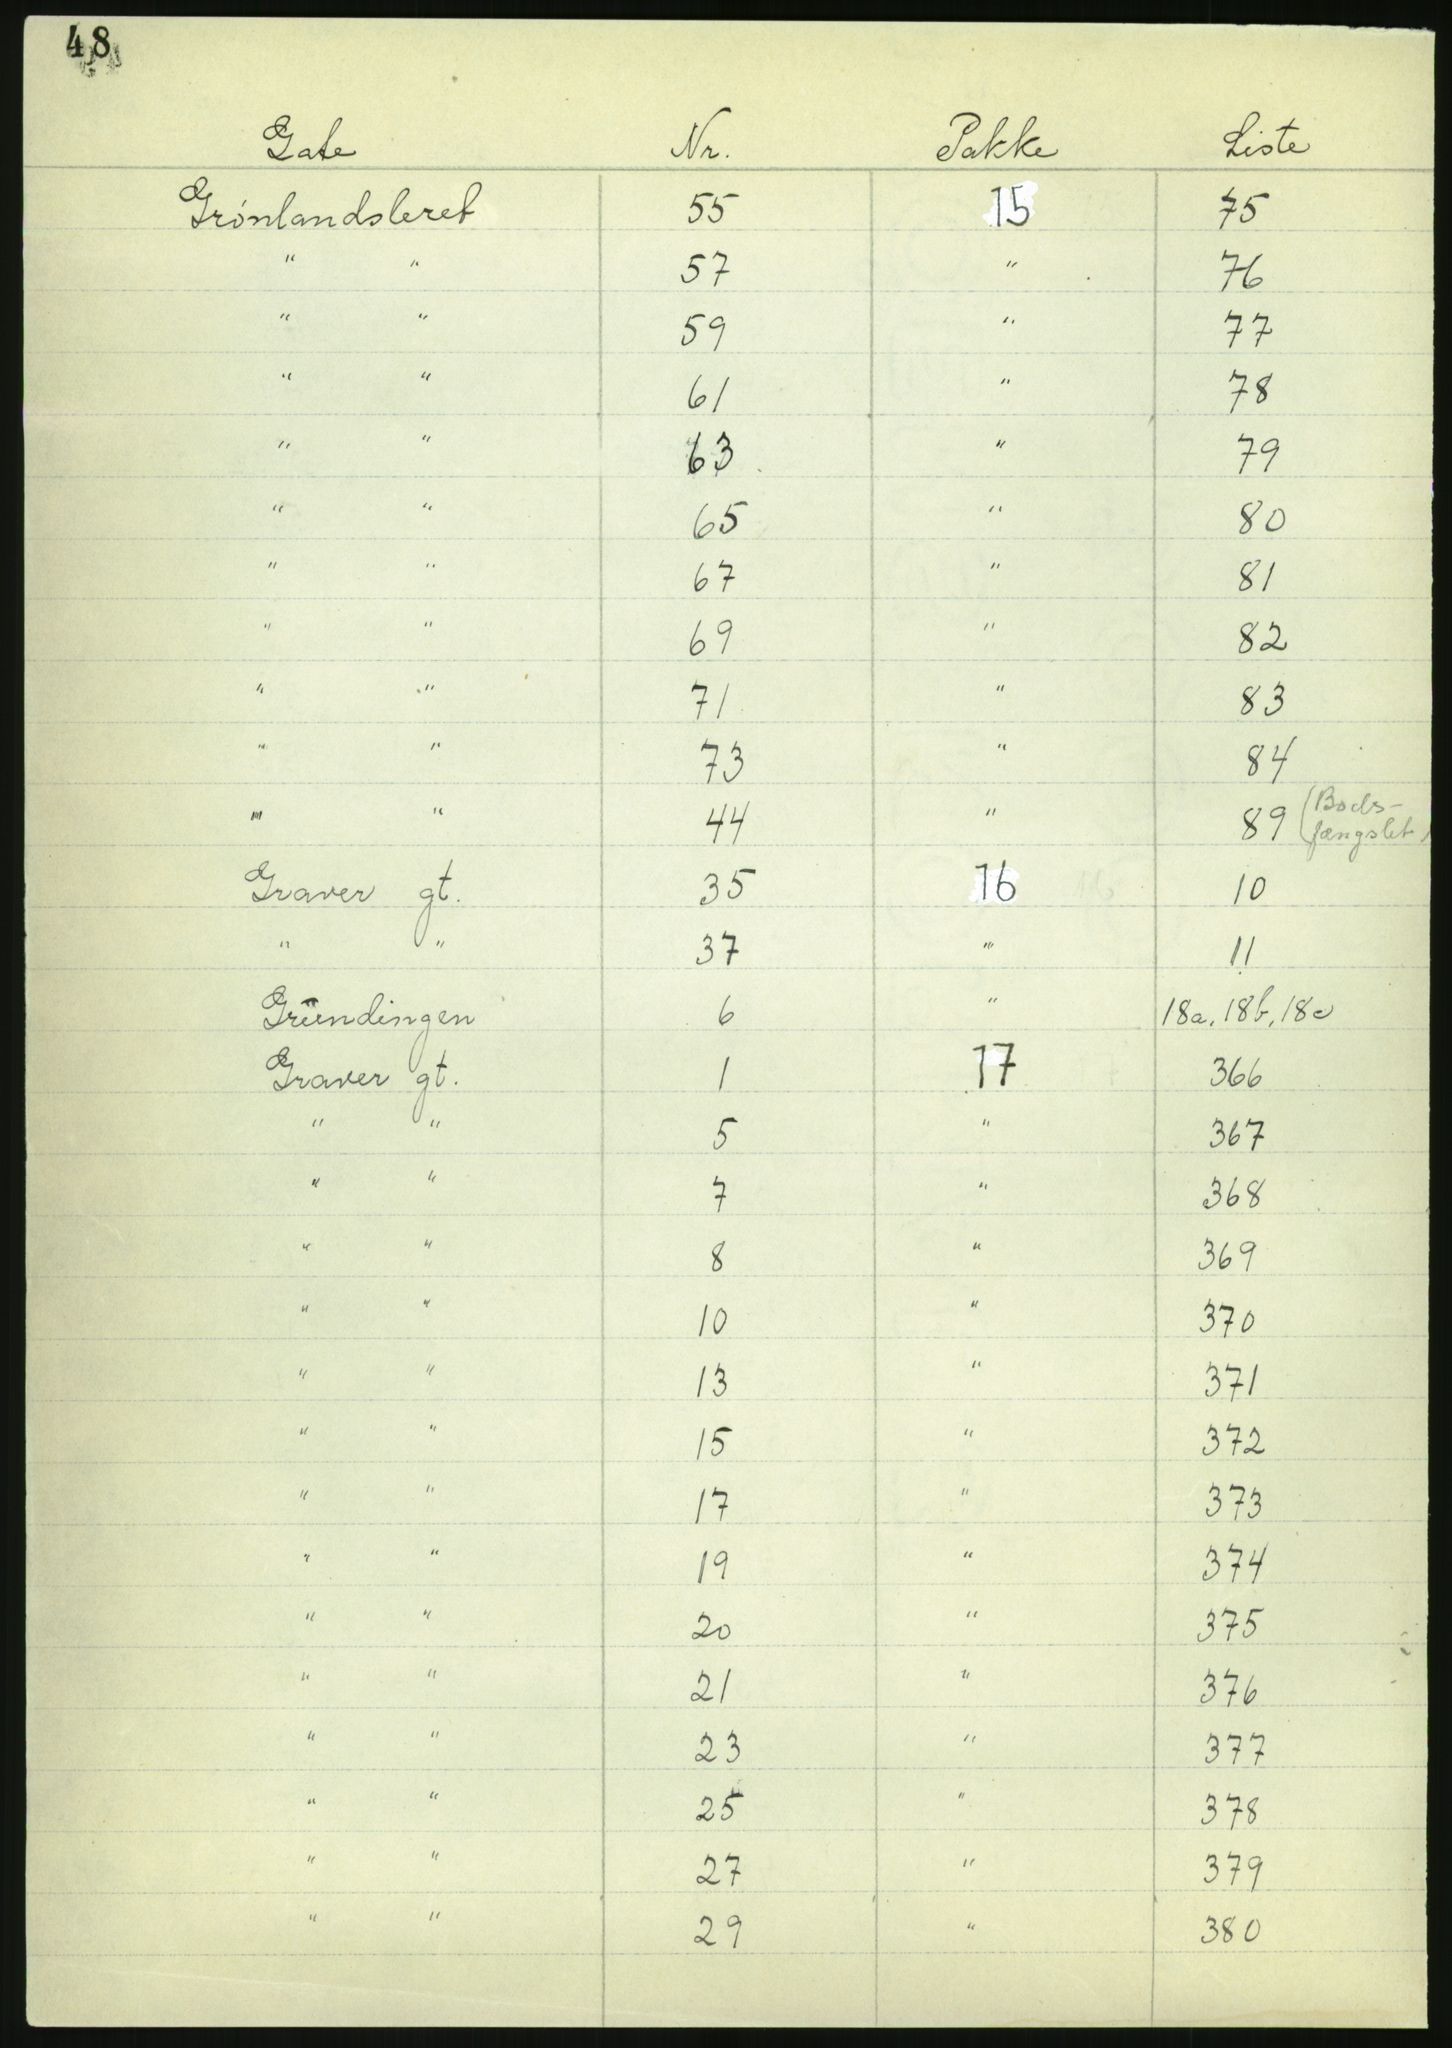 48
Gate Nr. Pakke Liste
Grönlandsleret 55 15 75
" " 57 " 76
" " 59 " 77
" " 61 " 78
" " 63 " 79
" " 65 " 80
" " 67 " 81
" " 69 " 82
" " 71 " 83
" " 73 " 84
" " 44 " 89 (Bods-
fængslet)
Graver gt. 35 16 10
" " 37 " 11
Gründingen 6 " 18a, 18b, 18c
Graver gt. 1 17 366
" " 5 " 367
" " 7 " 368
" " 8 " 369
" " 10 " 370
" " 13 " 371
" " 15 " 372
" " 17 " 373
" " 19 " 374
" " 20 " 375
" " 21 " 376
" " 23 " 377
" " 25 " 378
" " 27 " 379
" " 29 " 380